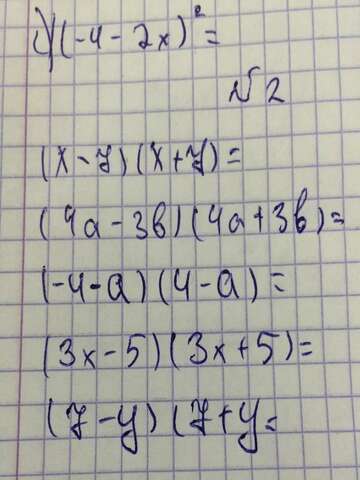 c) (-4-2x)²=
№2
(x-y)(x+y)=
(4a-3b)(4a+3b)=
(-4-a)(4-a)=
(3x-5)(3x+5)=
(7-y)(7+y=